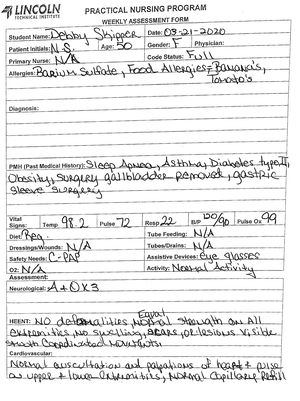 LINCOLN
TECHNICAL INSTITUTE
PRACTICAL NURSING PROGRAM
WEEKLY ASSESSMENT FORM
Student Name: Debby Skipper Date: 03-21-2020
Patient Initials: N.S. Age: 50 Gender: F Physician:
Primary Nurse: N/A Code Status: Full
Allergies: Barium Sulfate, Food Allergies = Banana's,
Tomato's
Diagnosis:
PMH (Past Medical History): Sleep Apnea, Asthma, Diabetes type II,
Obesity, Surgery gallbladder removed, gastric
Sleeve surgery
Vital Signs: Temp 98.2 Pulse 72 Resp 22 B/P 120/90 Pulse Ox 99
Diet Reg. Tube Feeding: N/A
Dressings/Wounds: N/A Tubes/Drains: N/A
Safety Needs: C-PAP Assistive Devices: Eye glasses
O2: N/A Activity: Normal Activity
Assessment:
Neurological: A+OX3
Equal
HEENT: No deformalities, Normal strength on All
extremities, no swelling, scars, or lesions visible
smooth coordinated movements.
Cardiovascular:
Normal auscultation and palpations of heart + pulse
on upper + lower extremities, normal capillary refill